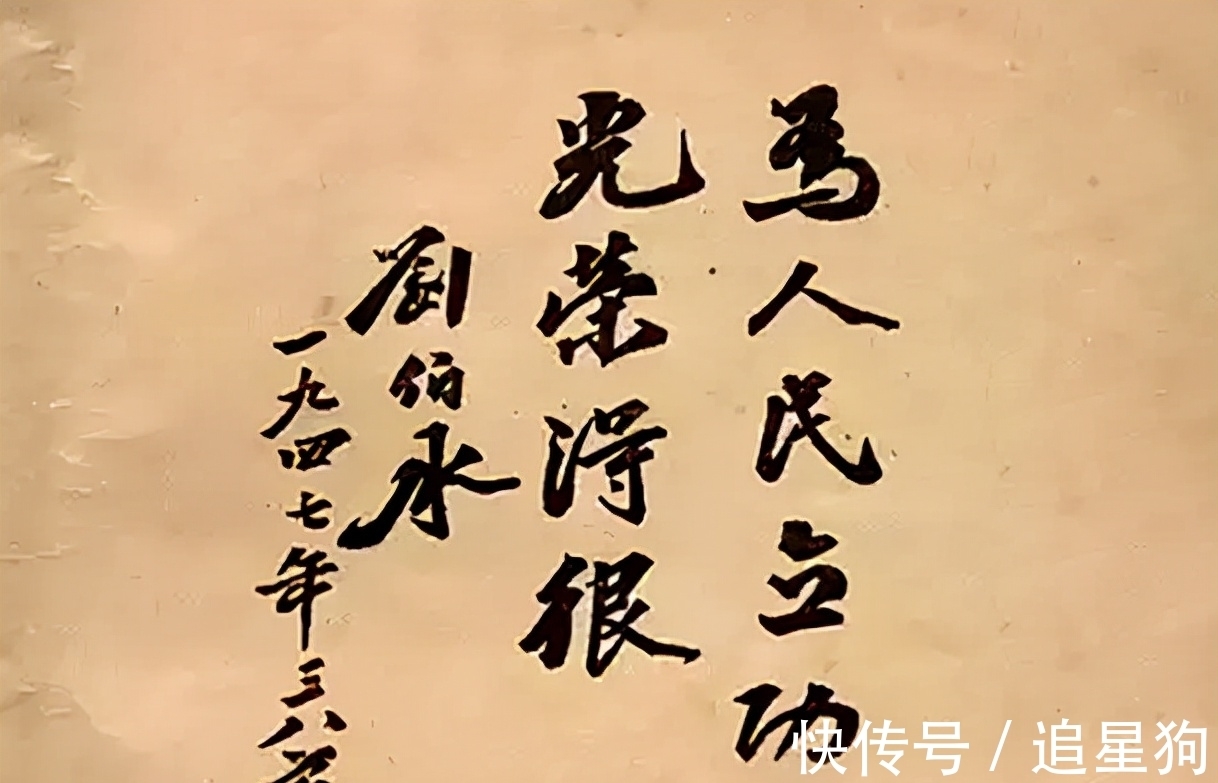 為人民立功
光荣得很
劉伯承
一九四七年三八节
快传号 / 追星狗